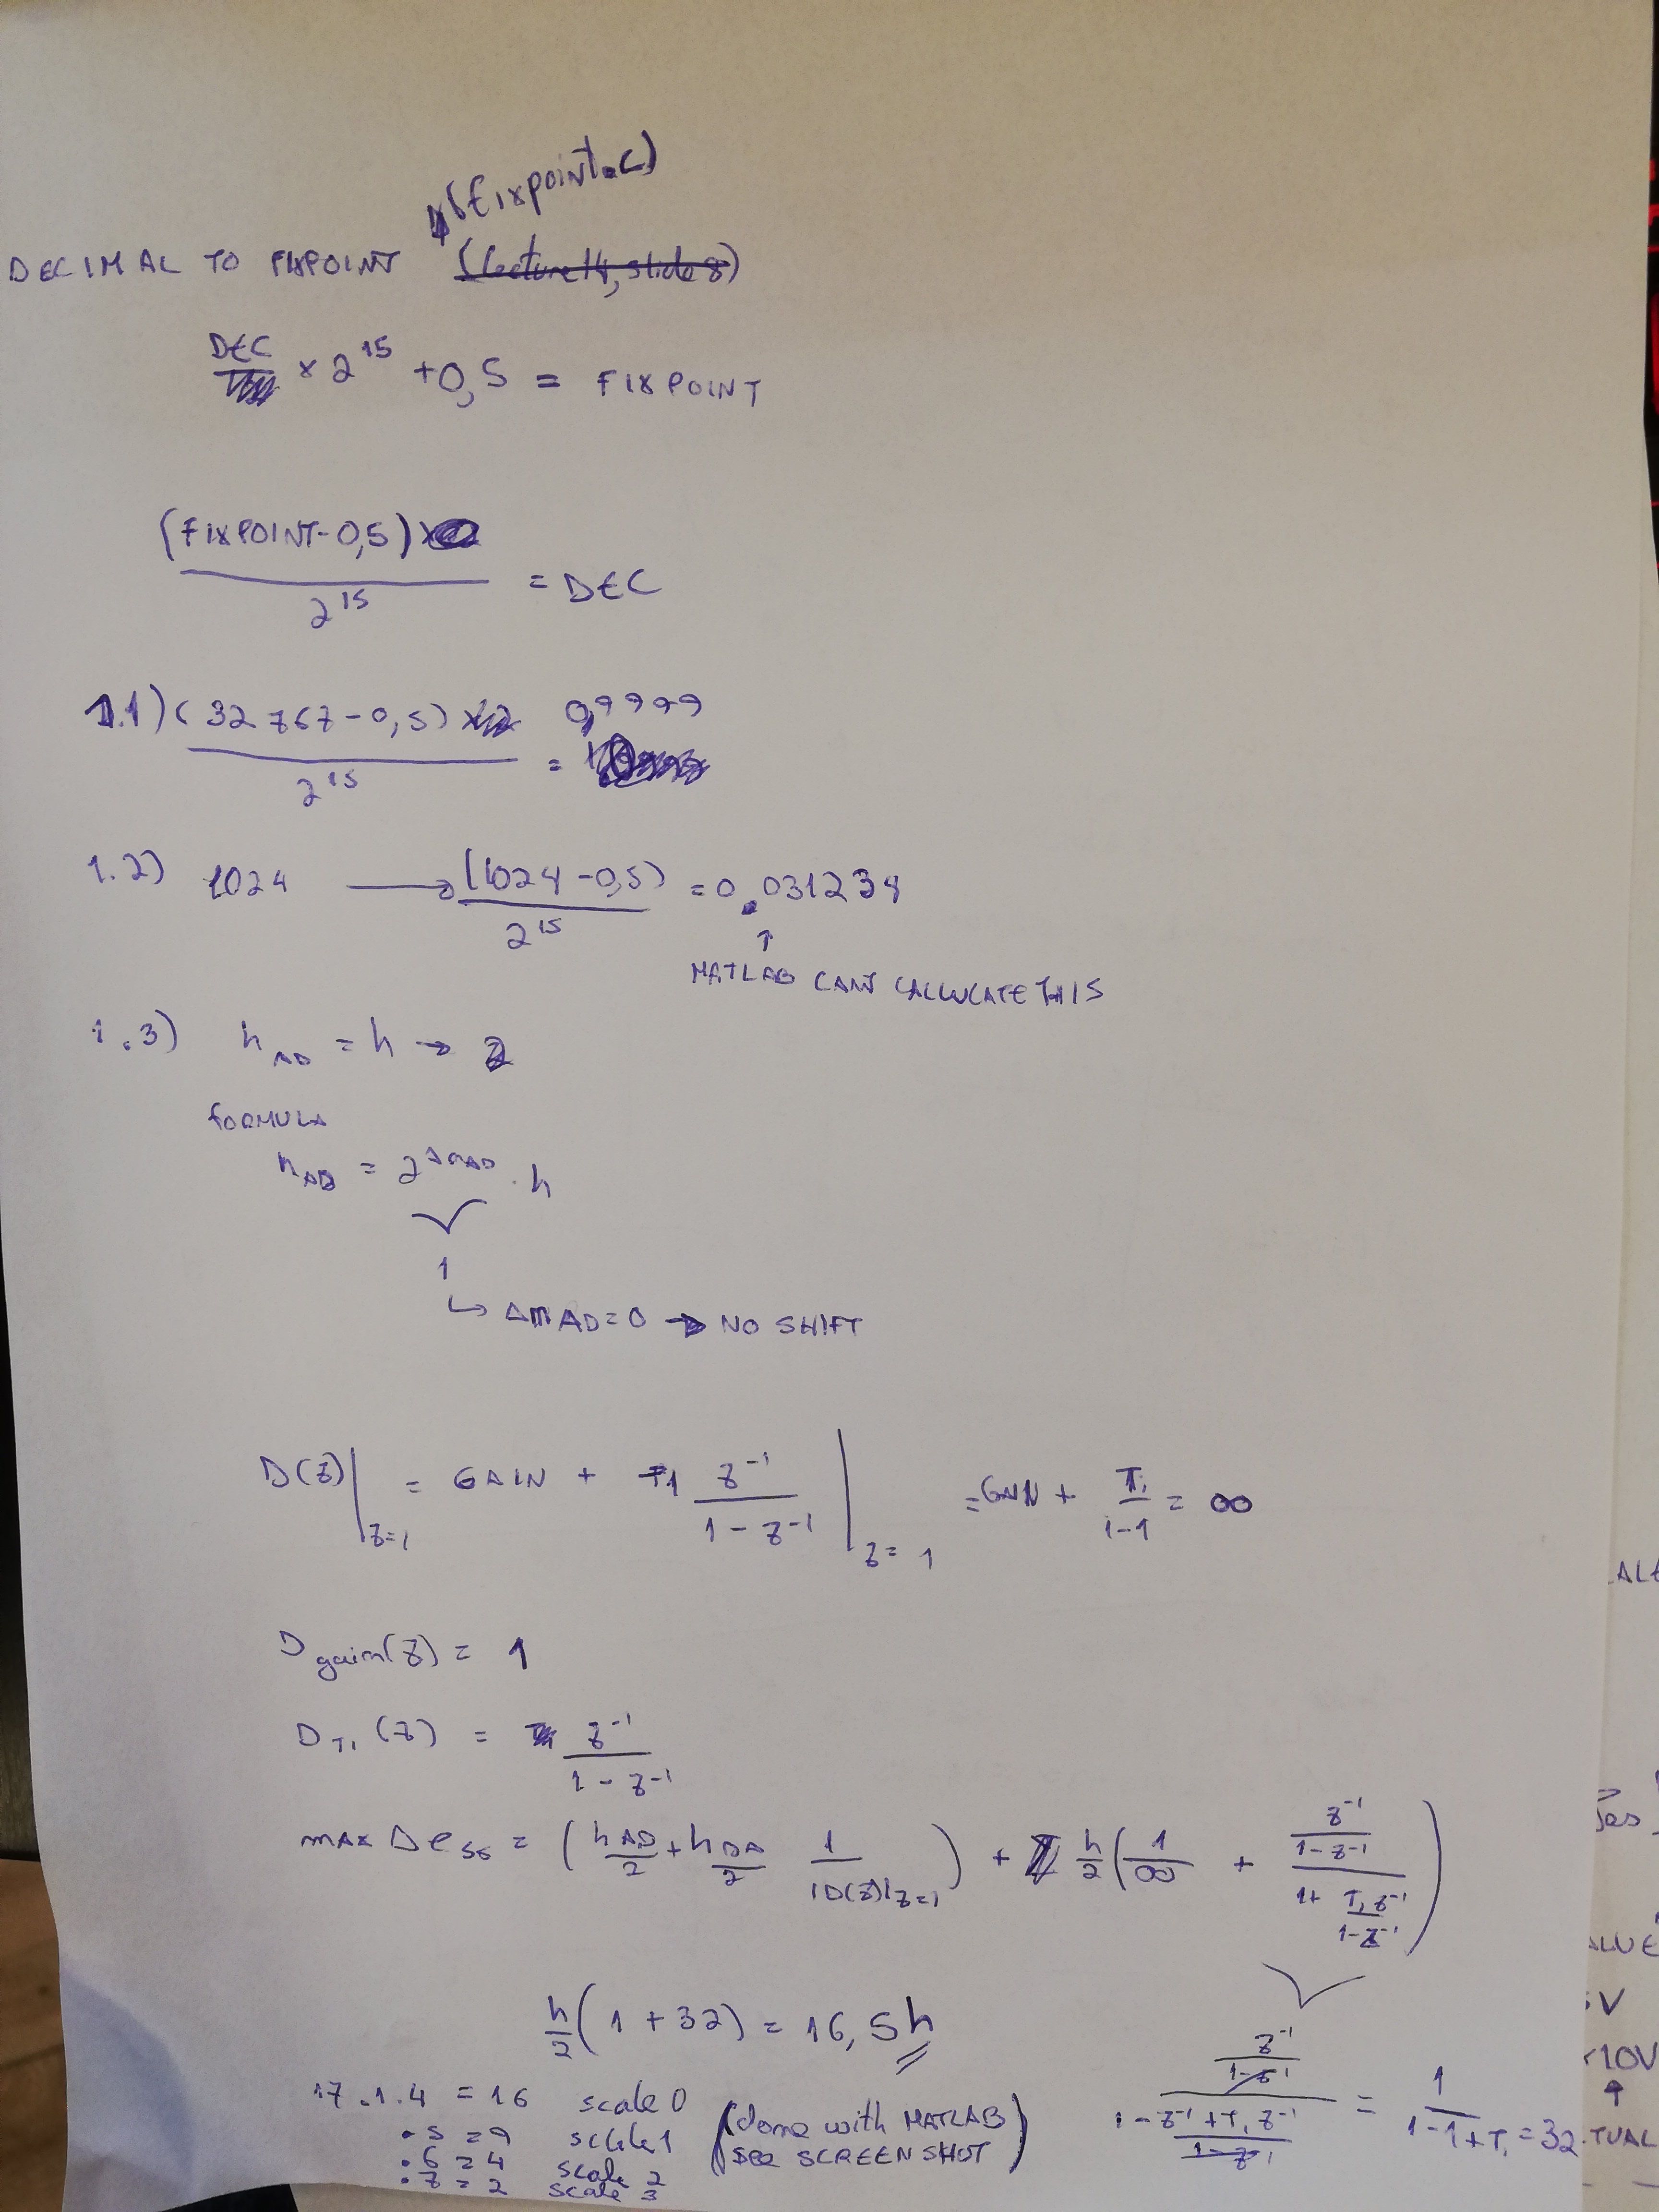 (fixpoint.c)
DECIMAL TO FIXPOINT (lecture 14, slide 8)
DEC × 2^15 + 0,5 = FIXPOINT
(FIXPOINT-0,5) / 2^15 = DEC
1.1) (32767-0,5) / 2^15 = 0,9999
1.2) 1024 → (1024-0,5) / 2^15 = 0.031234
↑
MATLAB CANT CALLUCATE THIS
1.3) h_AD = h → 2
FORMULA
h_AD = 2^ΔmAD · h
1
↳ ΔmAD=0 → NO SHIFT
D(z)|z=1 = GAIN + T1 z^-1 / (1 - z^-1) |z=1 = GAIN + Ti / (1-1) = ∞
D gain(z) = 1
D Ti (z) = z^-1 / (1 - z^-1)
MAX Δe_ss = (h_AD/2 + h_DA/2 1/|D(z)|z=1) + h/2 (1/∞ + (z^-1 / (1-z^-1)) / (1 + Ti z^-1 / (1-z^-1)))
h/2 (1 + 32) = 16,5h
(z^-1 / (1-z^-1)) / ((1-z^-1+Ti z^-1) / (1-z^-1)) = 1 / (1-1+Ti) = 32
17.1.4 = 16 scale 0
.5 = 9 scale 1
.6 = 4 scale 2
.7 = 2 scale 3
(done with MATLAB
see SCREENSHOT)
ALUE
5V
10V
↑
TUAL